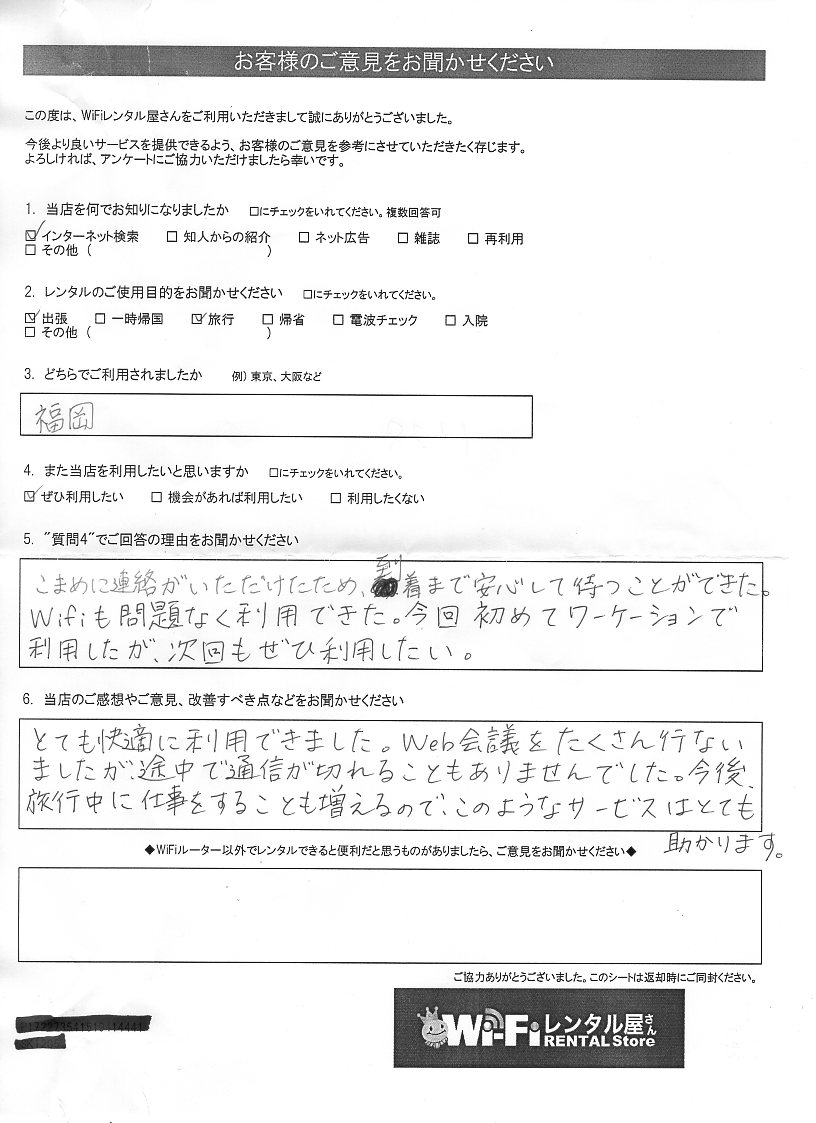 お客様のご意見をお聞かせください
この度は、WiFiレンタル屋さんをご利用いただきまして誠にありがとうございました。
今後より良いサービスを提供できるよう、お客様のご意見を参考にさせていただきたく存じます。
よろしければ、アンケートにご協力いただけましたら幸いです。
1. 当店を何でお知りになりましたか □にチェックをいれてください。複数回答可
☑インターネット検索 □ 知人からの紹介 □ ネット広告 □ 雑誌 □ 再利用
□ その他 ( )
2. レンタルのご使用目的をお聞かせください □にチェックをいれてください。
☑出張 □ 一時帰国 ☑旅行 □ 帰省 □ 電波チェック □ 入院
□ その他 ( )
3. どちらでご利用されましたか 例) 東京、大阪など
福岡
4. また当店を利用したいと思いますか □にチェックをいれてください。
☑ぜひ利用したい □ 機会があれば利用したい □ 利用したくない
5. "質問4"でご回答の理由をお聞かせください
こまめに連絡がいただけたため、到着まで安心して待つことができた。
Wifiも問題なく利用できた。今回初めてワーケーションで
利用したが、次回もぜひ利用したい。
6. 当店のご感想やご意見、改善すべき点などをお聞かせください
とても快適に利用できました。Web会議をたくさん行ない
ましたが途中で通信が切れることもありませんでした。今後、
旅行中に仕事をすることも増えるので、このようなサービスはとても
助かります。
◆WiFiルーター以外でレンタルできると便利だと思うものがありましたら、ご意見をお聞かせください◆
ご協力ありがとうございました。このシートは返却時にご同封ください。
Wi-Fiレンタル屋さん
RENTAL Store